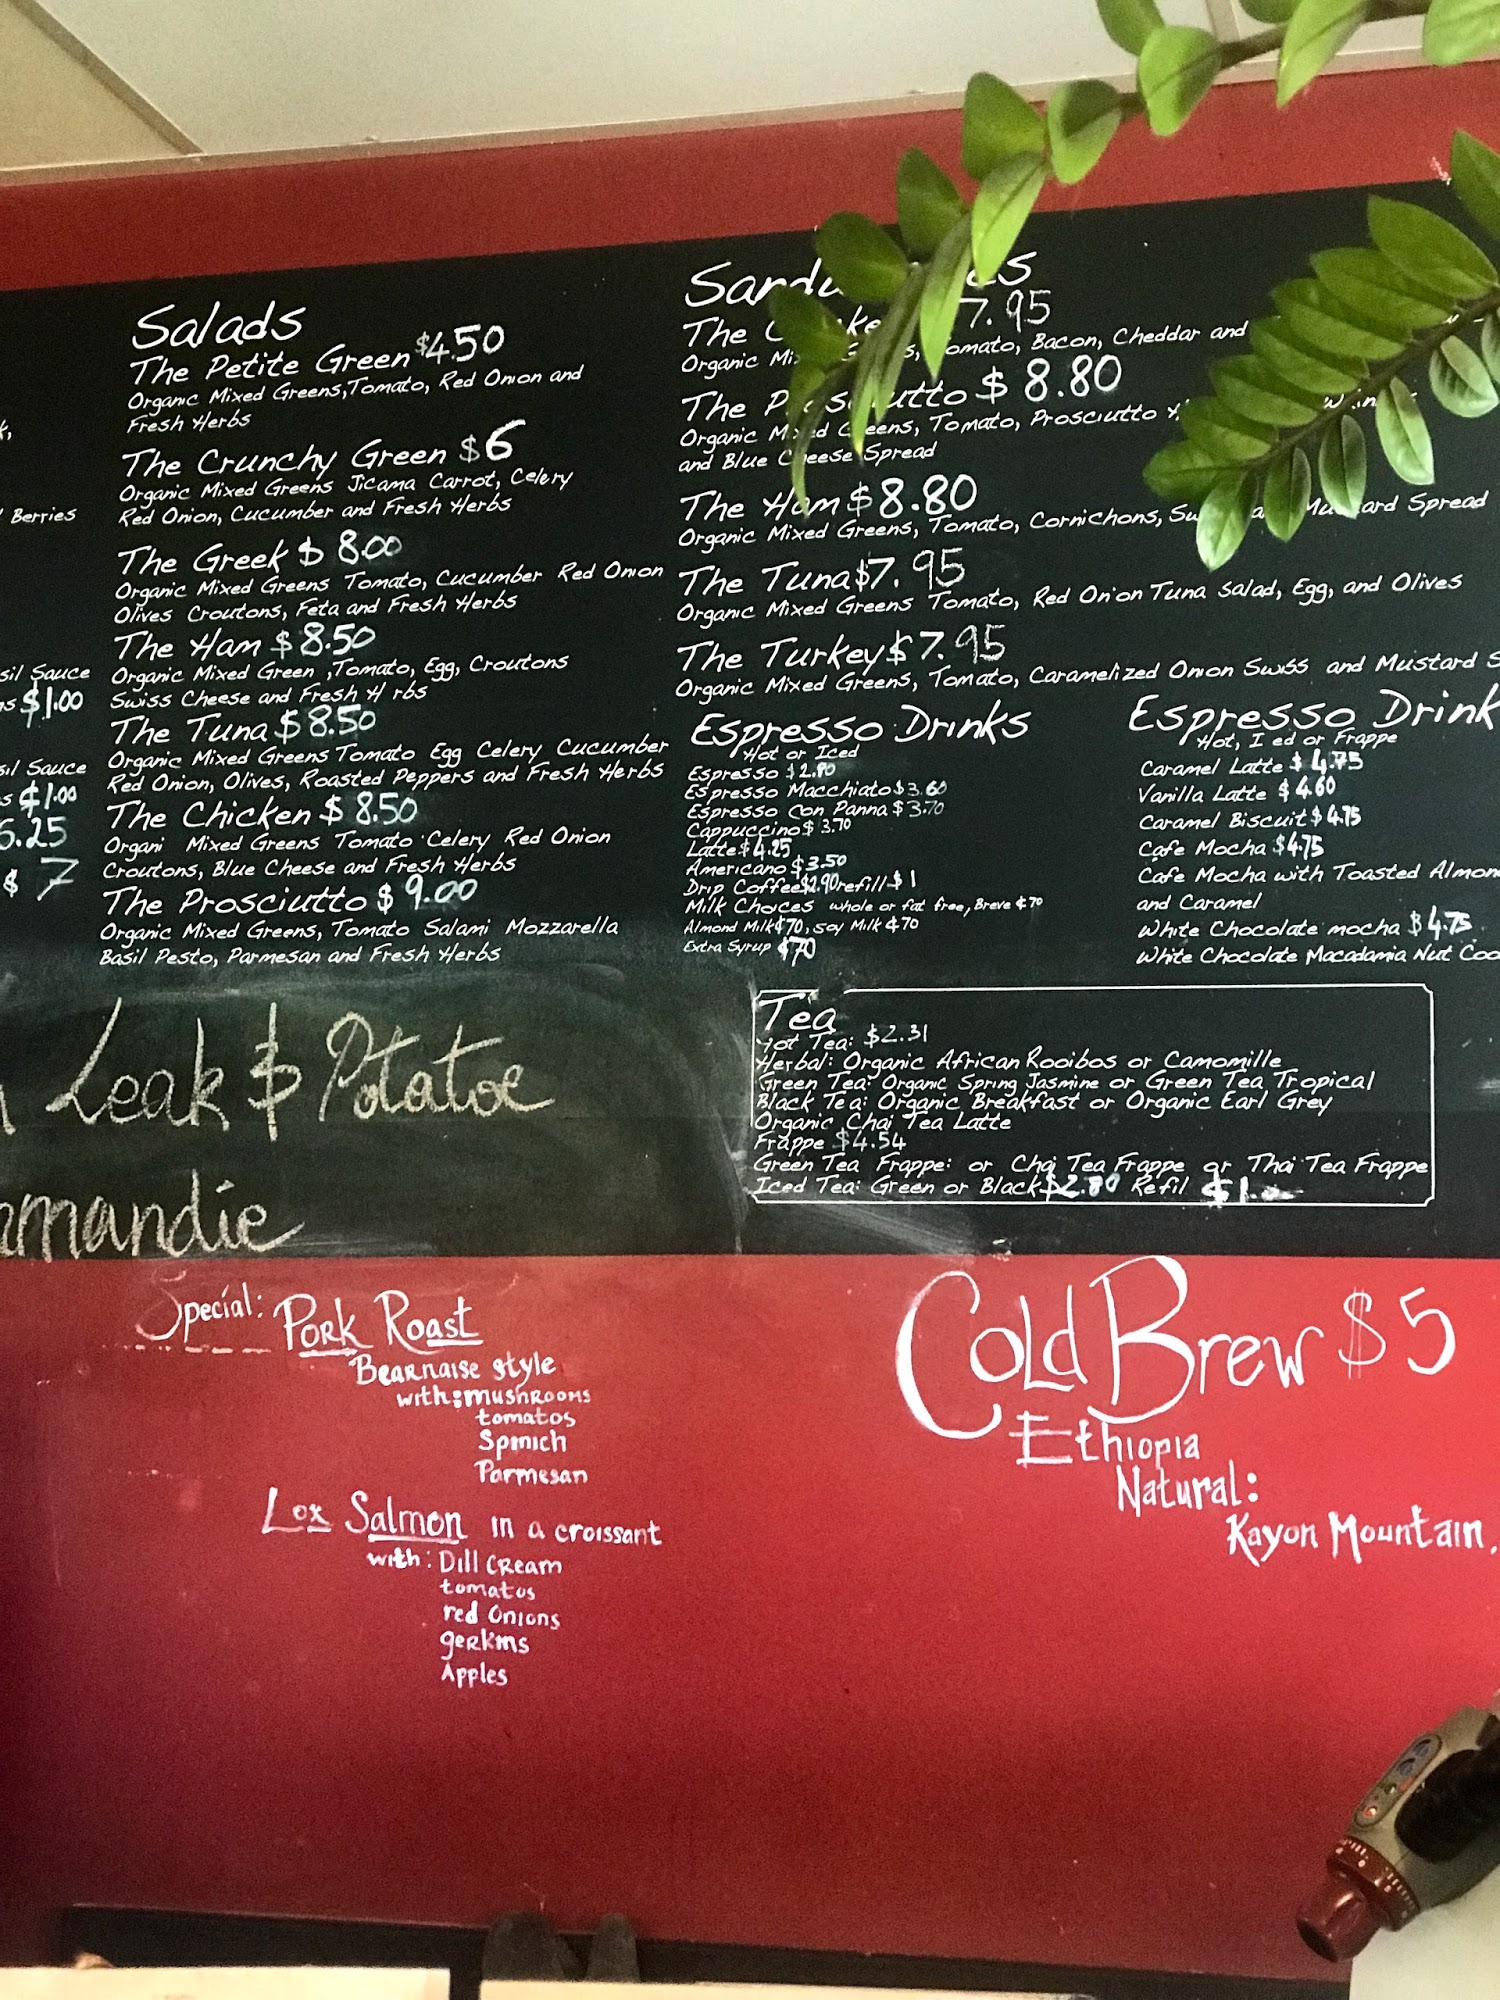 Berries
sil Sauce
$1.00
sil Sauce
$1.00
$ 7
Salads
The Petite Green $4.50
Organic Mixed Greens, Tomato, Red Onion and
Fresh Herbs
The Crunchy Green $6
Organic Mixed Greens Jicama Carrot, Celery
Red Onion, Cucumber and Fresh Herbs
The Greek $8.00
Organic Mixed Greens Tomato, Cucumber Red Onion
Olives Croutons, Feta and Fresh Herbs
The Ham $8.50
Organic Mixed Green , Tomato, Egg, Croutons
Swiss Cheese and Fresh H rbs
The Tuna $8.50
Organic Mixed Greens Tomato Egg Celery Cucumber
Red Onion, Olives, Roasted Peppers and Fresh Herbs
The Chicken $8.50
Organi Mixed Greens Tomato Celery Red Onion
Croutons, Blue Cheese and Fresh Herbs
The Prosciutto $9.00
Organic Mixed Greens, Tomato Salami Mozzarella
Basil Pesto, Parmesan and Fresh Herbs
The 7.95
Organic Tomato, Bacon, Cheddar and
The Prosciutto $8.80
Organic Mixed Greens, Tomato, Prosciutto
and Blue Cheese Spread
The Ham $8.80
Organic Mixed Greens, Tomato, Cornichons, Mustard Spread
The Tuna $7.95
Organic Mixed Greens Tomato, Red Onion Tuna Salad, Egg, and Olives
The Turkey $7.95
Organic Mixed Greens, Tomato, Caramelized Onion Swiss and Mustard S
Espresso Drinks
Hot or Iced
Espresso $2.80
Espresso Macchiato $3.60
Espresso Con Panna $3.70
Cappuccino $3.70
Latte $4.25
Americano $3.50
Drip Coffee $2.90 refill $1
Milk Choices whole or fat free, Breve ¢70
Almond Milk ¢70, soy Milk ¢70
Extra Syrup ¢70
Espresso Drink
Hot, I ed or Frappe
Caramel Latte $4.75
Vanilla Latte $4.60
Caramel Biscuit $4.75
Cafe Mocha $4.75
Cafe Mocha with Toasted Almon
and Caramel
White Chocolate mocha $4.75
White Chocolate Macadamia Nut Coo
Leak & Potatoe
mandie
Tea
Hot Tea: $2.31
Herbal: Organic African Rooibos or Camomille
Green Tea: Organic Spring Jasmine or Green Tea Tropical
Black Tea: Organic Breakfast or Organic Earl Grey
Organic Chai Tea Latte
Frappe $4.54
Green Tea Frappe: or Chai Tea Frappe or Thai Tea Frappe
Iced Tea: Green or Black $2.80 Refil $1
Special: Pork Roast
Bearnaise style
with: mushrooms
tomatos
Spinich
Parmesan
Lox Salmon in a croissant
with: Dill Cream
tomatos
red Onions
gerkins
Apples
Cold Brew $5
Ethiopia
Natural:
Kayon Mountain.